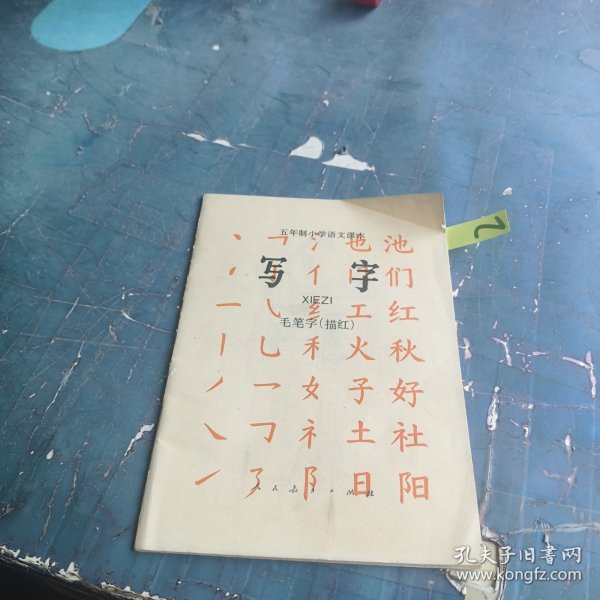 五年制小学语文课本
写字
XIEZI
毛笔字(描红)
丶 乛 氵 也 池
亻 门 们
一 乚 纟 工 红
丨 乚 禾 火 秋
丿 ㇀ 女 子 好
㇏ ㇆ 礻 土 社
㇀ ㇌ 阝 日 阳
人民教育出版社
2
孔夫子旧书网
www.kongfz.com